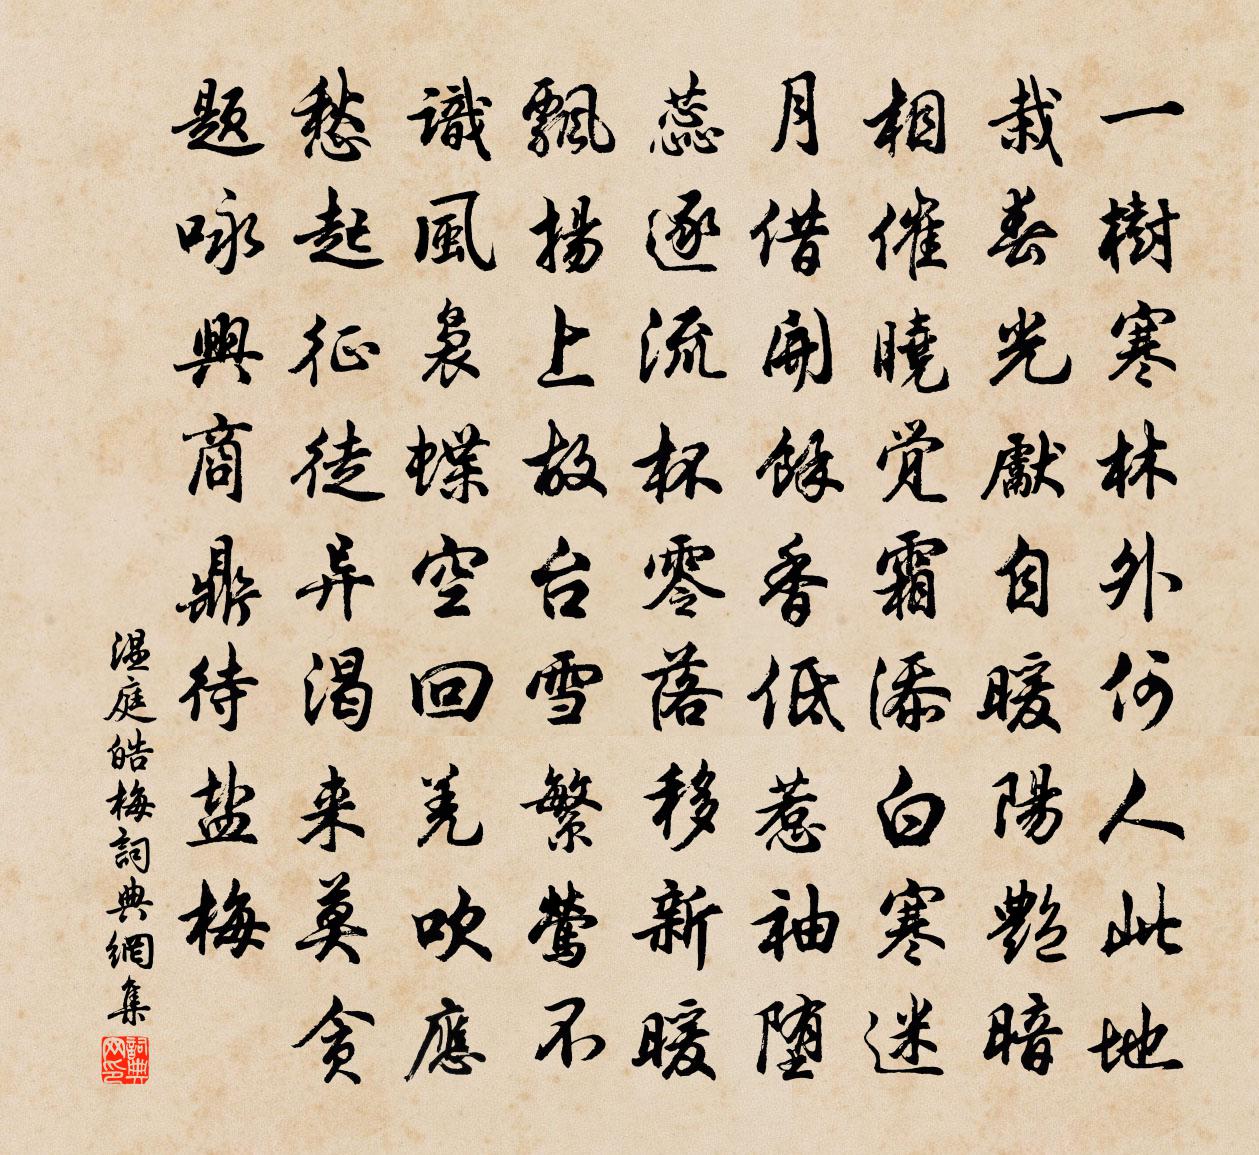 一樹寒林外何人此地
栽春光獻自暖陽艷暗
相催曉覚霜添白寒迷
月借開餘香低惹袖堕
蕊逐流杯零落移新暖
飄揚上故台雪繁鶯不
識風裊蝶空回羌吹應
愁起征徒异渴来莫贪
题咏興商鼎待盐梅
温庭皓梅詞典網集
詞典网印